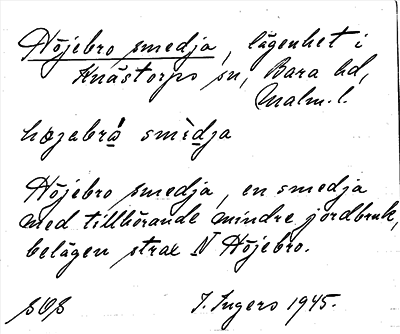 Höjebro smedja, lägenhet i
Knästorps sn, Bara hd,
Malm.l.
højabrå smìdja
Höjebro smedja, en smedja
med tillhörande mindre jordbruk,
belägen strax N Höjebro.
SOS I. Ingers 1945.